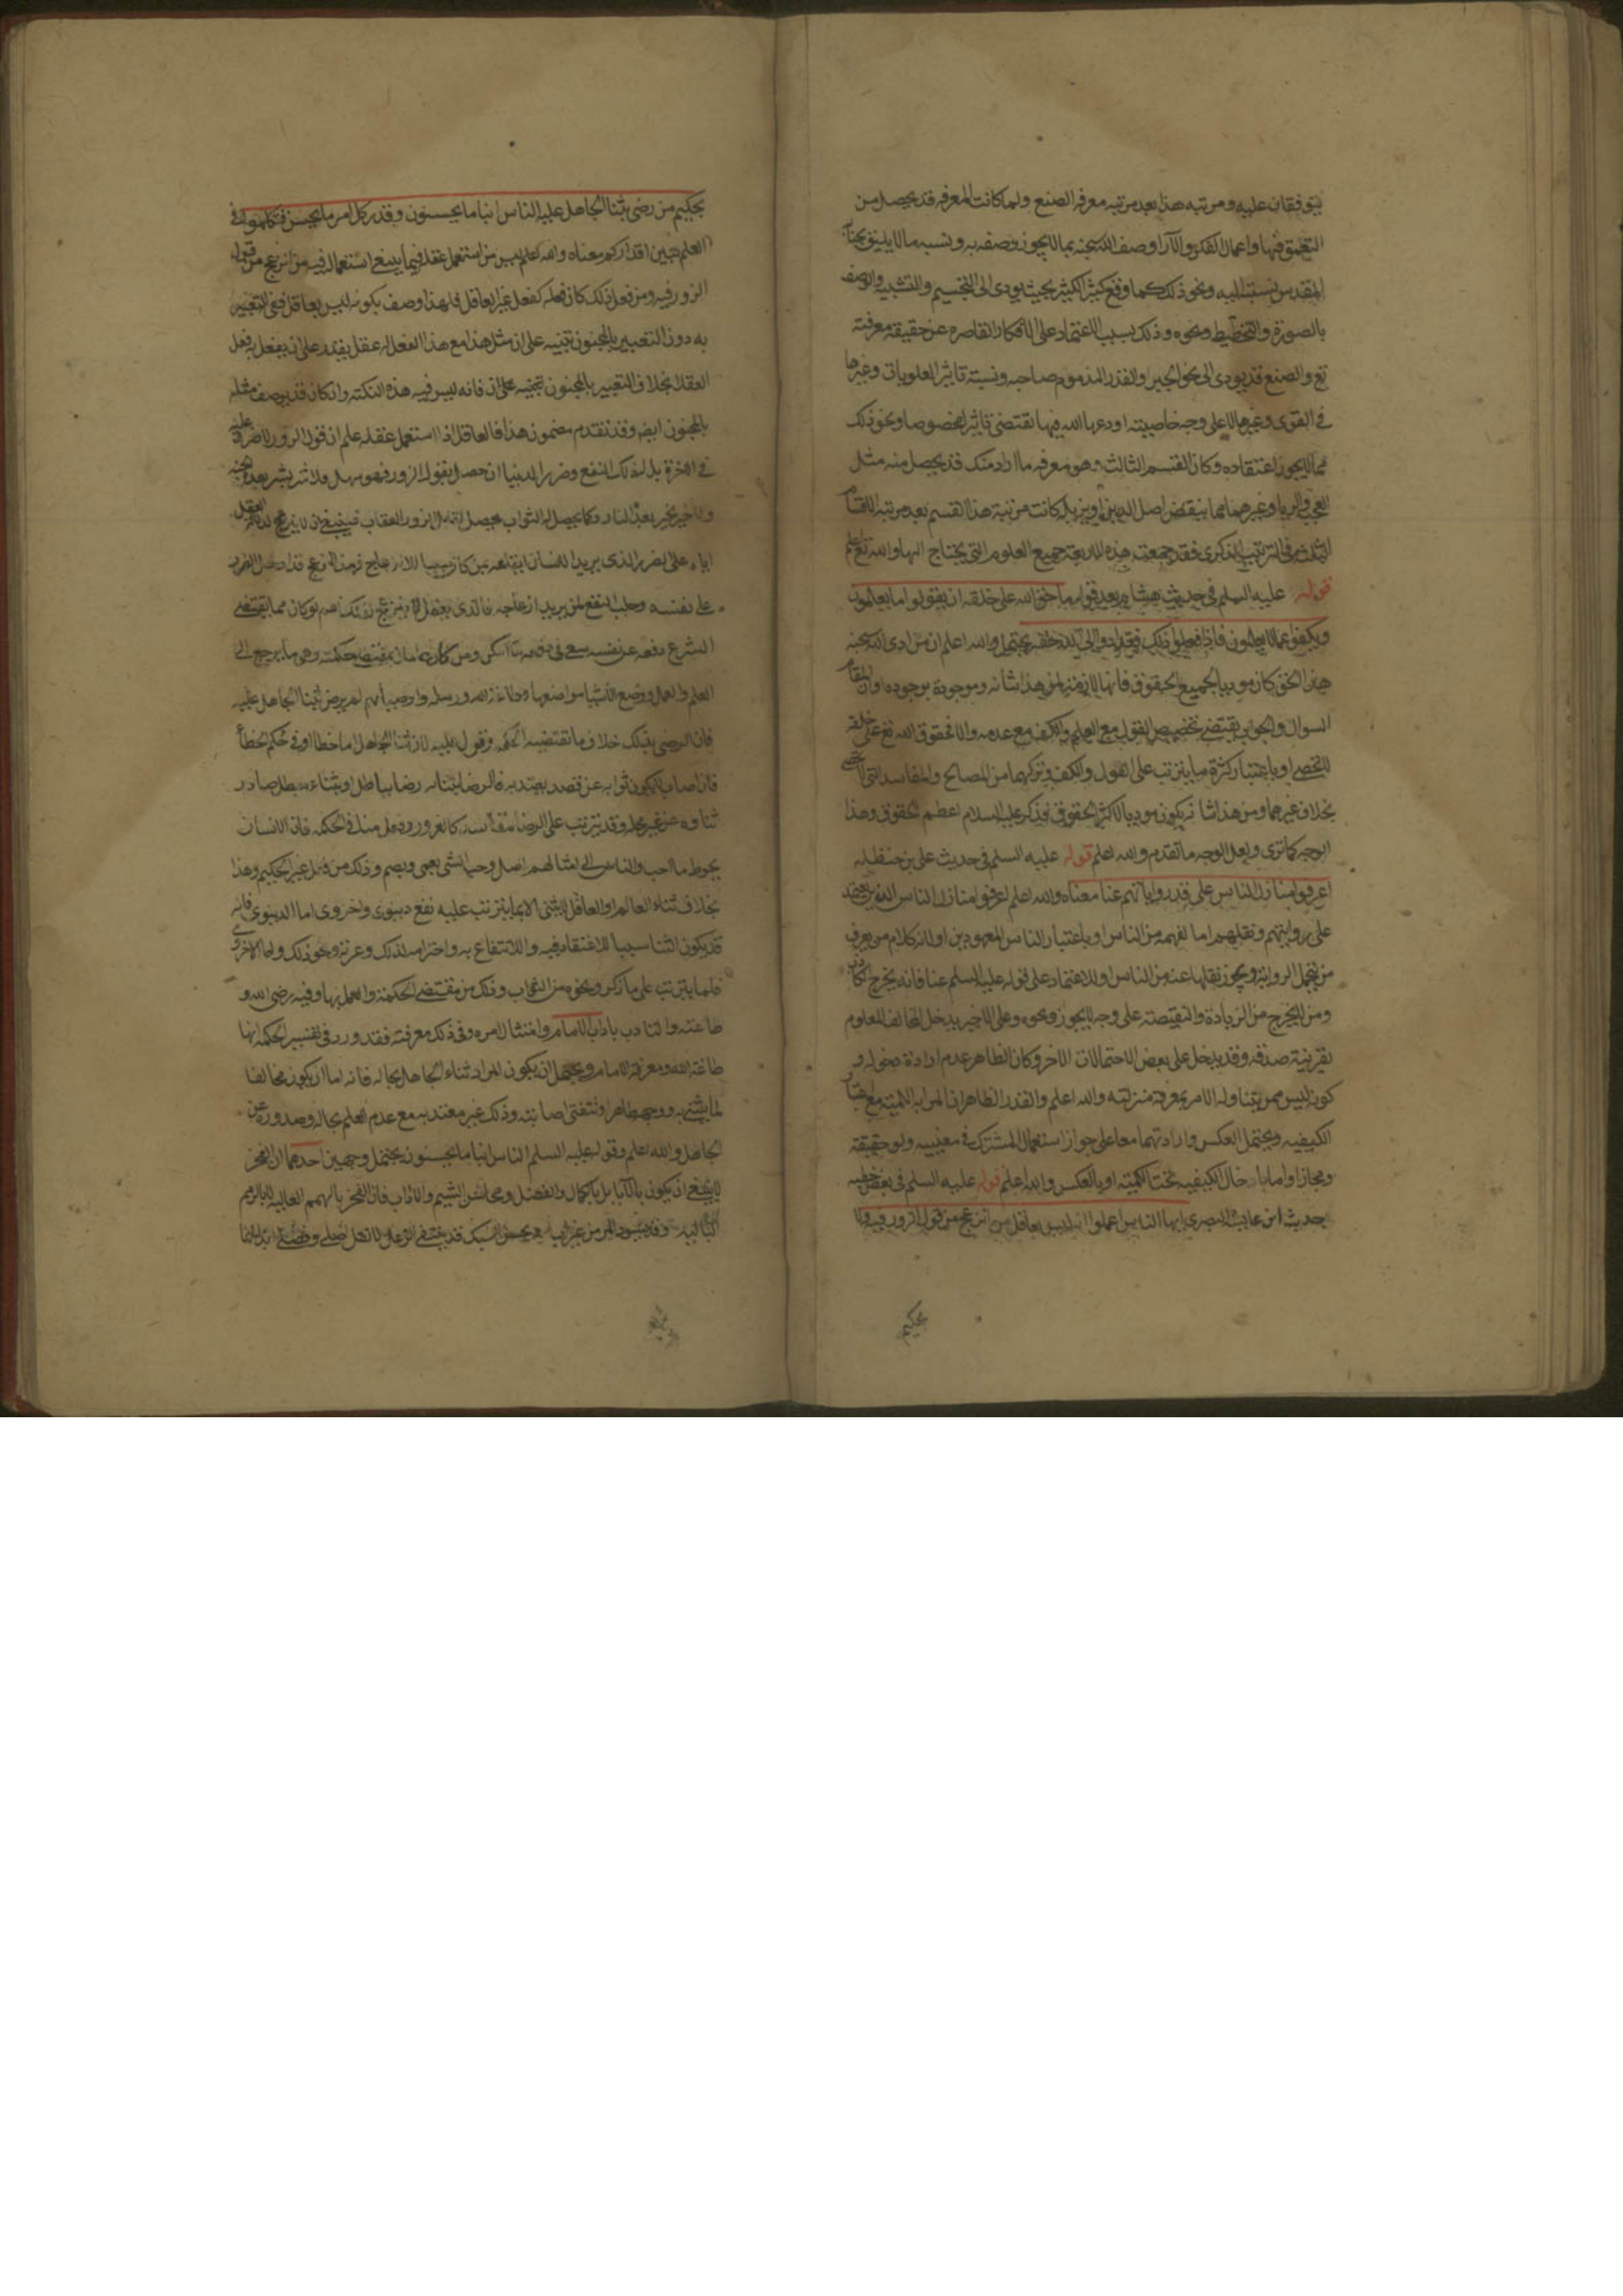 يتوفقان عليه ومرتبه هذا بعد مرتبه معرفه الصنع ولما كانت المعرفه قد يحصل من
التعمق فيها واعمال الفكر والآرا وصف الله سبحنه بما لا يجوز وصفه به ونسبه ما لا يليق بجنابه
المقدس نسبته اليه ونحو ذلك كما وقع كثير الكثير بحيث يودى الى التجسيم والتشبيه والوصف
بالصورة والتخطيط ونحوه وذلك بسبب الاعتماد على الافكار القاصره عن حقيقة معرفته
تع والصنع قد يودى الى نحو الجبر والقدر المذموم صاحبه ونسبته تاثير العلويات وغيرها
فى القوى وغيرها لا على وجه خاصيته اودعها الله فيها تقتضى تاثيرا مخصوصا ونحو ذلك
مما لا يجوز اعتقاده وكان القسم الثالث وهو معرفه ما اراد منك قد يحصل منه مثل
العجب والريا وغيرهما مما ينقض اصل الدين او يزيله كانت مرتبة هذا القسم بعد مرتبه الاقسام
الثلاثه فى الترتيب الذكرى فقد جمعت هذه الاربعة جميع العلوم التى يحتاج اليها والله تع اعلم
قوله عليه السلم فى حديث هشام بعد قوله ما حق الله على خلقه ان يقولوا ما يعلمون
ويكفوا عما لا يعلمون فاذا فعلوا ذلك فقد ادوا الى الله حقه يحتمل والله اعلم ان من ادى لله سبحنه
هذا الحق كان موديا لجميع الحقوق فانها لازمة لمن هذا شانه وموجودة بوجوده او ان المقام
السوال والجواب يقتضى تخصيص القول مع العلم والكف مع عدمه والا فحقوق الله تع على خلقه
لا تحصى او باعتبار كثرة ما يترتب على القول والكف وتركهما من المصالح والمفاسد التى لا تحصى
بخلاف غيرهما ومن هذا شانه يكون موديا لاكثر الحقوق فذكر عليه السلام اعظم الحقوق وهذا
اوجه كما ترى ولعل الوجه ما تقدم والله اعلم قوله عليه السلم فى حديث على بن حنظله
اعرفوا منازل الناس على قدر رواياتهم عنا معناه والله اعلم اعرفوا منازل الناس الذين يعتمد
على روايتهم ونقلهم اما لفهمه من الناس او باعتبار الناس المعهودين او لانه كلام من يعرف
من يتحمل الرواية ويجوز نقلها عنه من الناس او للاعتماد على قوله عليه السلم عنا فانه يخرج الكاذب
ومن لا يتحرج من الزيادة والنقيصة على وجه لا يجوز ونحوه وعلى الاخير يدخل المخالف المعلوم
بقرينة صدقه وقد يدخل على بعض الاحتمالات الاخر وكان الظاهر عدم ارادة دخوله و
كونه ليس ممن يتناوله الامر بمعرفة منزلته والله اعلم والقدر الظاهر ان المراد به الكمية مع اعتبار
الكيفيه ويحتمل العكس وارادتهما معا على جواز استعمال المشترك فى معنييه ولو حقيقة
ومجازا واما بادخال الكيفيه تحت الكمية او بالعكس والله اعلم قوله عليه السلم فى بعض خطبه
حديث ابن عايشة البصرى ايها الناس اعملوا انه ليس بعاقل من انزعج من قول الزور فيه ولا
بحكيم
بحكيم من رضى بثنا الجاهل عليه الناس ابنا ما يحسنون وقدر كل امر ما يحسن فتكلموا فى
العلم تبين اقداركم معناه والله اعلم ليس من استعمل عقله فيما ينبغى استعماله فيه من انزعج من قول
الزور فيه ومن فعل ذلك كان فعله كفعل غير العاقل فلهذا وصف بكونه ليس بعاقل ففى التعبير
به دون التعبير بالمجنون تنبيه على ان مثل هذا مع هذا الفعل له عقل يقدر على ان يفعل به فعل
العقلا بخلاف التعبير بالمجنون فانه ليس فيه هذه النكتة وان كان قد يوصف مثله
بالمجنون ايضا وقد تقدم مضمون هذا فالعاقل اذا استعمل عقله علم ان قول الزور لا ضرر فيه عليه
فى الاخرة بل له ذلك النفع وضرر الدنيا ان حصل بقول الزور فهو سهل ولا شر بشر بعده الجنه
ولا خير بخير بعده النار وكما يحصل له الثواب يحصل لقائل الزور العقاب فينبغى ان لا ينزعج
اياه على الضرر الذى يريد الانسان ايقاعه بمن كان سببا
على نفسه وجلب النفع لمن يريد ازعاجه فالذى يفعل لو كان مما يقتضى
الشرع دفعه عن نفسه سعى فى دفعه ما امكن ومن كان حكيما حكمته وهو ما يرجع الى
العلم والعمل ووضع الاشيا مواضعها وطاعة الله ورسله واوصيائهم لم يرض بثنا الجاهل عليه
فان الرضى بذلك خلاف ما تقتضيه الحكمه وقوله عليه لان ثنا الجاهل اما خطا او فى حكم الخطأ
فان اصاب لا يكون ثوابه عن قصد يعتد به فالرضا بثنائه رضا بباطل او بثناء مبطل صادر
ثناوه عن غير محله وقد يترتب على الرضا مفاسد كالغرور ونحوه مناف الحكمه فان الانسان
يحوط ما احب والناس الى امثالهم اميل وحب الشى يعمى ويصم وذلك من فعل غير الحكيم وهذا
بخلاف ثناء العالم او العاقل لا يثنى الا بما يترتب عليه نفع دينوى واخروى اما الدينوى فانه
قد يكون الثنا سببا للاعتقاد فيه والانتفاع به واحترامه لذلك وعزته ونحو ذلك واما الاخروى
فلما يترتب على ما ذكر ونحوه من الثواب وذلك من مقتضى الحكمة والعمل بها وفيه رضى الله و
طاعته والتادب باداب الامام وامتثال امره وفى ذلك معرفته فقد ورد فى تفسير الحكمه انها
طاعة الله ومعرفة الامام ويحتمل ان يكون المراد ثناء الجاهل بحاله فانه اما ان يكون مخالفا
لما يثنى به ووجهه ظاهر او تتفق اصابته وذلك غير معتد به مع عدم العلم بحاله وصدوره عن
الجاهل والله اعلم وقوله عليه السلم الناس ابنا ما يحسنون يحتمل وجهين احدهما ان الفخر
لا ينبغى ان يكون بالآبا بل بالكمال والفضل ومحاسن الشيم والاداب فان الفخر بالهمم العاليه لا بالرمم
الباليه وقد يسود المر من غير اب